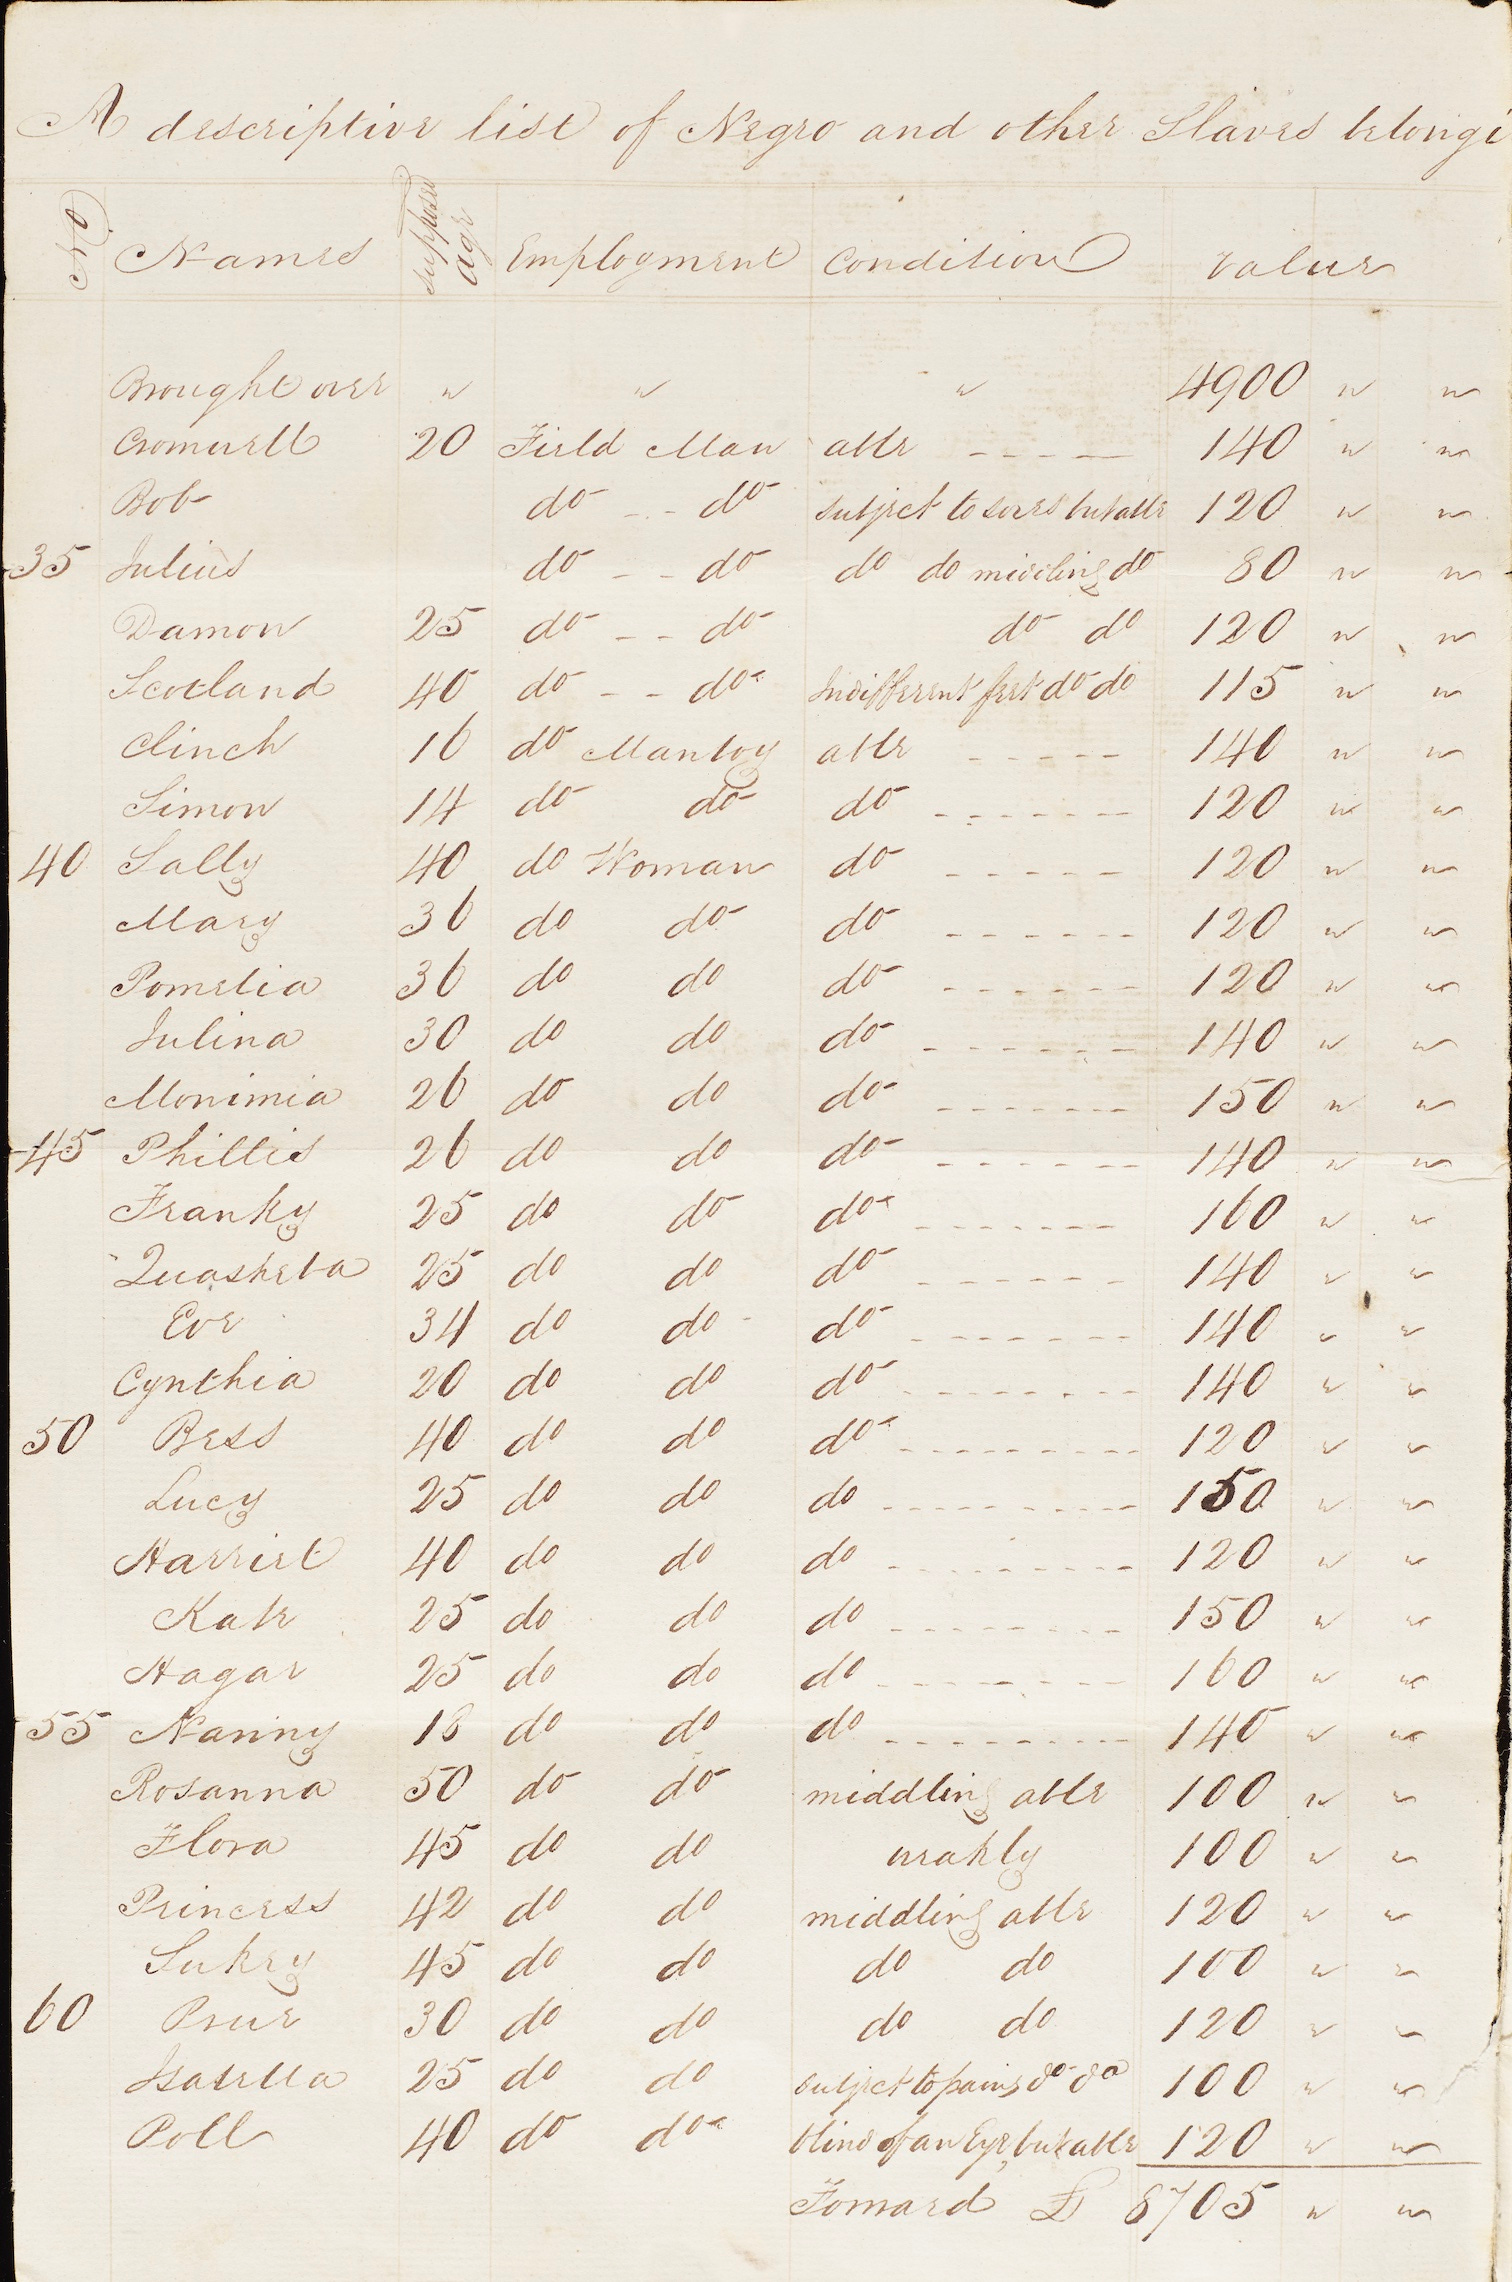 A descriptive list of Negro and other Slaves belongi
No Names supposed age Employment Condition Value
Brought over " " " 4900 " "
Cromwell 20 Field Man able - - - - 140 " "
Bob do - - do subject to sores but able 120 " "
35 Julius do - - do do do middling do 80 " "
Damon 25 do - - do do do 120 " "
Scotland 40 do - - do Indifferent feet do do 115 " "
Clinch 16 do Manboy able - - - - - 140 " "
Simon 14 do do do - - - - - - - 120 " "
40 Sally 40 do Woman do - - - - - 120 " "
Mary 36 do do do - - - - - - 120 " "
Pomelia 36 do do do - - - - - - 120 " "
Julina 30 do do do - - - - - - 140 " "
Monimia 26 do do do - - - - - - 150 " "
45 Phillis 26 do do do - - - - - - 140 " "
Franky 25 do do do - - - - - - 160 " "
Quasheba 25 do do do - - - - - - 140 " "
Eve 34 do do do - - - - - - - 140 " "
Cynthia 20 do do do - - - - - - - 140 " "
50 Bess 40 do do do - - - - - - - - 120 " "
Lucy 25 do do do - - - - - - - - 150 " "
Harriet 40 do do do - - - - - - - - 120 " "
Kate 25 do do do - - - - - - - - 150 " "
Hagar 25 do do do - - - - - - - - 160 " "
55 Nanny 18 do do do - - - - - - - - 140 " "
Rosanna 50 do do middling able 100 " "
Flora 45 do do weakly 100 " "
Princess 42 do do middling able 120 " "
Sukey 45 do do do do 100 " "
60 Prue 30 do do do do 120 " "
Isabella 25 do do subject to pains do do 100 " "
Poll 40 do do blind of an Eye, but able 120 " "
Forward £ 8705 " "